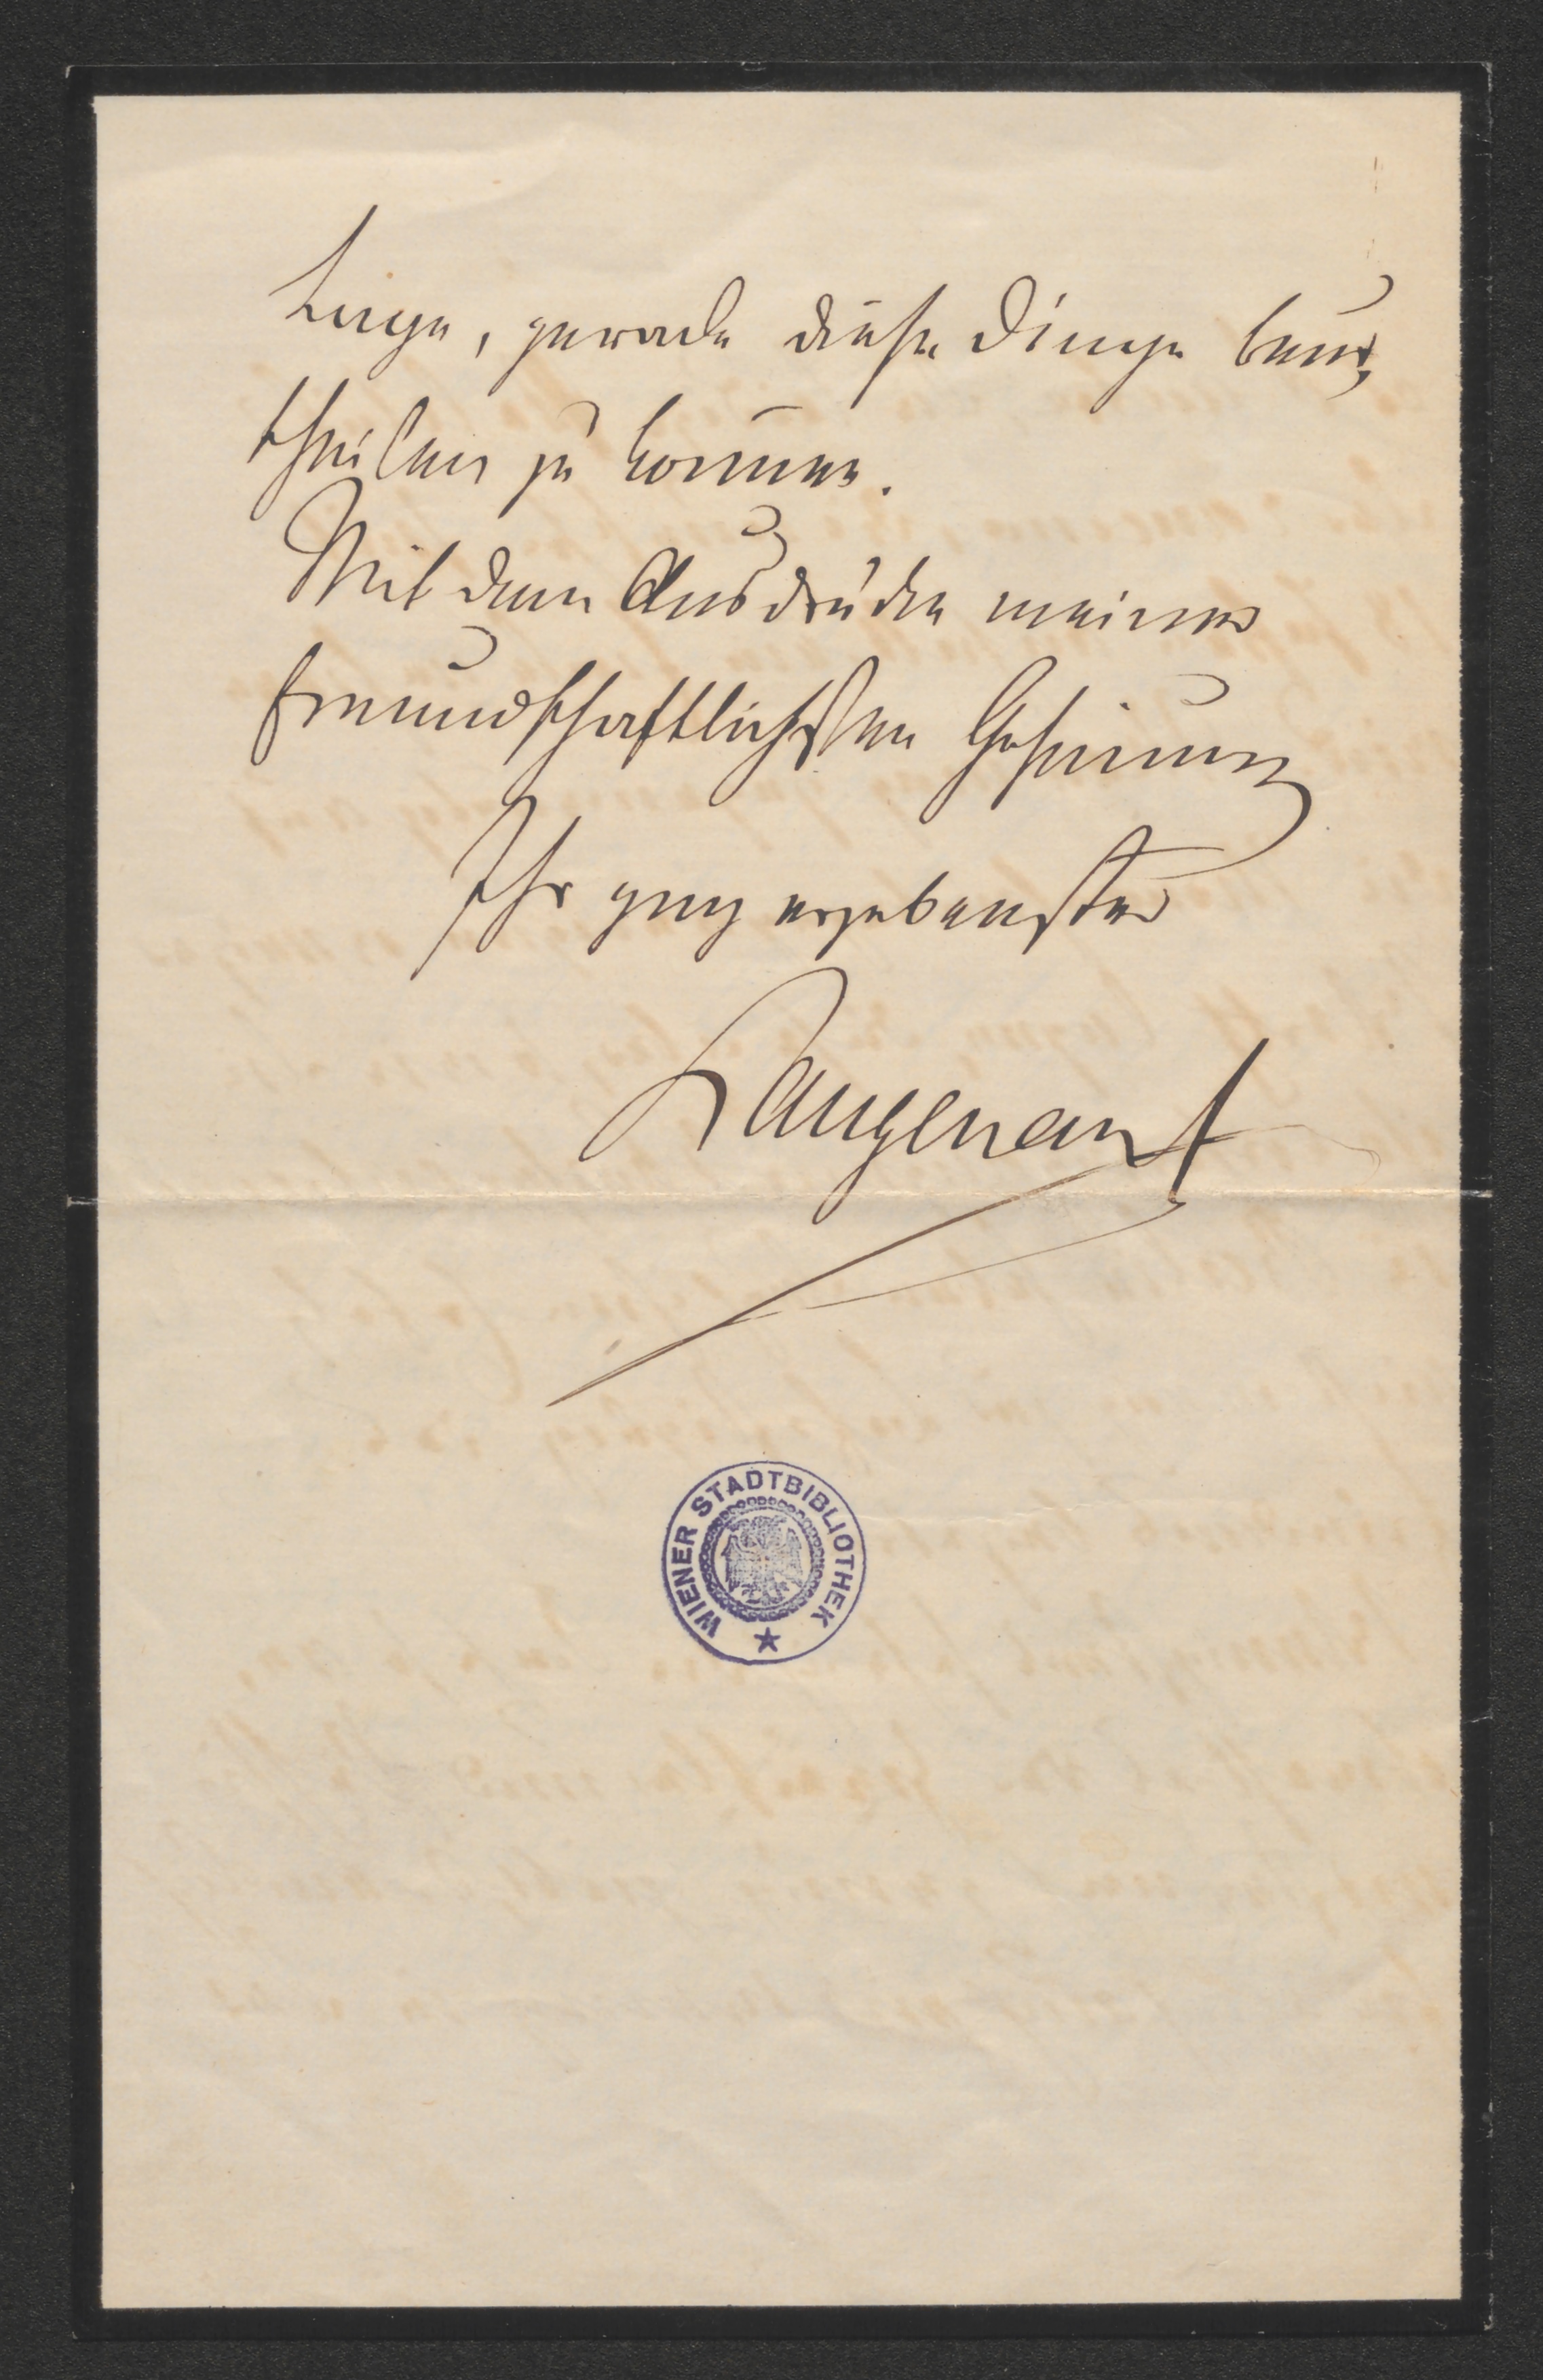 Lage, gerade diese Dinge beur-
theilen zu können.
Mit dem Ausdrucke meiner
freundschaftlichsten Gesinnung
Ihr ganz ergebenster
Langenau
WIENER STADTBIBLIOTHEK